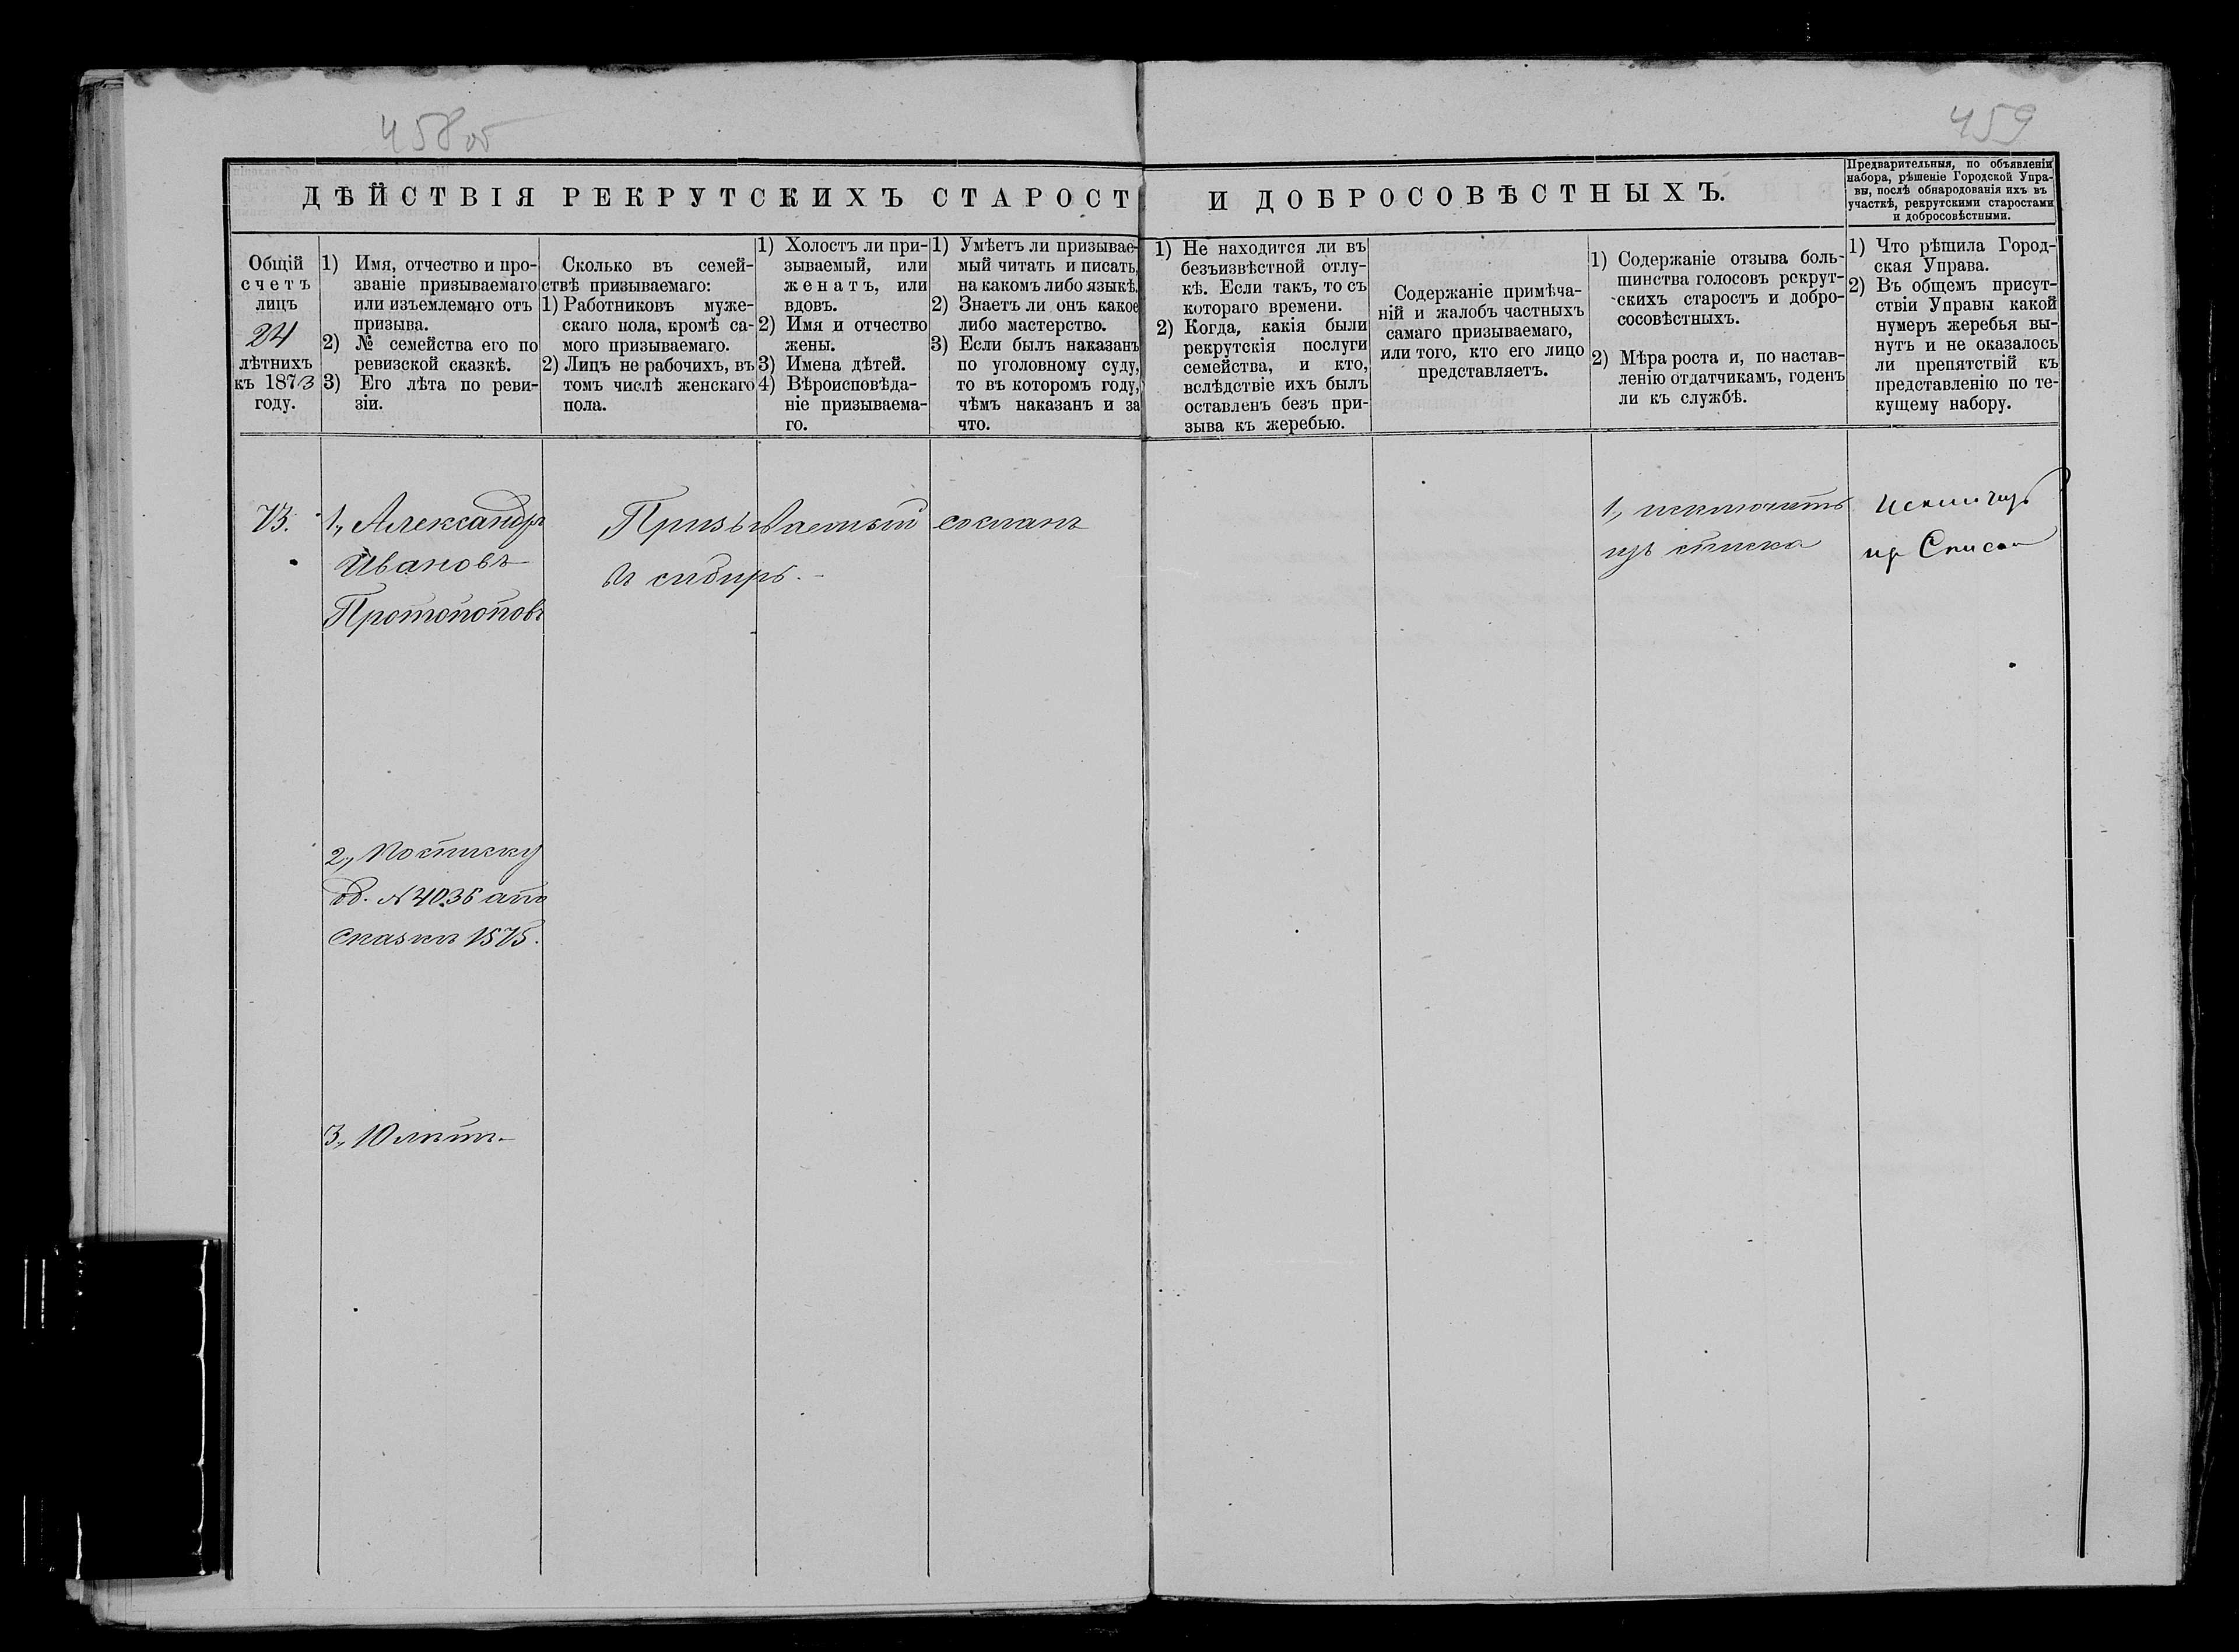 458об
459
ДѢЙСТВІЯ РЕКРУТСКИХЪ СТАРОСТ И ДОБРОСОВѢСТНЫХЪ.
Предварительныя, по объявленіи
набора, рѣшеніе Городской Упра-
вы, послѣ обнародованія ихъ въ
участкѣ, рекрутскими старостами
и добросовѣстными.
Общій
счетъ
лицъ
24
лѣтнихъ
къ 1873
году.
1) Имя, отчество и про-
званіе призываемаго
или изъемлемаго отъ
призыва.
2) № семейства его по
ревизской сказкѣ.
3) Его лѣта по реви-
зіи.
Сколько въ семей-
ствѣ призываемаго:
1) Работниковъ муже-
скаго пола, кромѣ са-
мого призываемаго.
2) Лицъ не рабочихъ, въ
томъ числѣ женскаго
пола.
1) Холостъ ли при-
зываемый, или
женатъ, или
вдовъ.
2) Имя и отчество
жены.
3) Имена дѣтей.
4) Вѣроисповѣда-
ніе призываема-
го.
1) Умѣетъ ли призывае-
мый читать и писать,
на какомъ либо языкѣ.
2) Знаетъ ли онъ какое
либо мастерство.
3) Если былъ наказанъ
по уголовному суду,
то въ которомъ году,
чѣмъ наказанъ и за
что.
1) Не находится ли въ
безъизвѣстной отлу-
кѣ. Если такъ, то съ
котораго времени.
2) Когда, какія были
рекрутскія послуги
семейства, и кто,
вслѣдствіе ихъ былъ
оставленъ безъ при-
зыва къ жеребью.
Содержаніе примѣча-
ній и жалобъ частныхъ
самаго призываемаго,
или того, кто его лицо
представляетъ.
1) Содержаніе отзыва боль-
шинства голосовъ рекрут-
скихъ старостъ и добро-
сосовѣстныхъ.
2) Мѣра роста и, по настав-
ленію отдатчикамъ, годенъ
ли къ службѣ.
1) Что рѣшила Город-
ская Управа.
2) Въ общемъ присут-
ствіи Управы какой
нумеръ жеребья вы-
нутъ и не оказалось
ли препятствій къ
представленію по те-
кущему набору.
73.
1, Александръ
Ивановъ
Протопоповъ
2, по списку
об. № 4036 а по
сказкѣ 1575.
3, 10 лѣтъ
Призываемый сосланъ
въ сибирь.
1, исключить
изъ списка
Исключить
из Списка